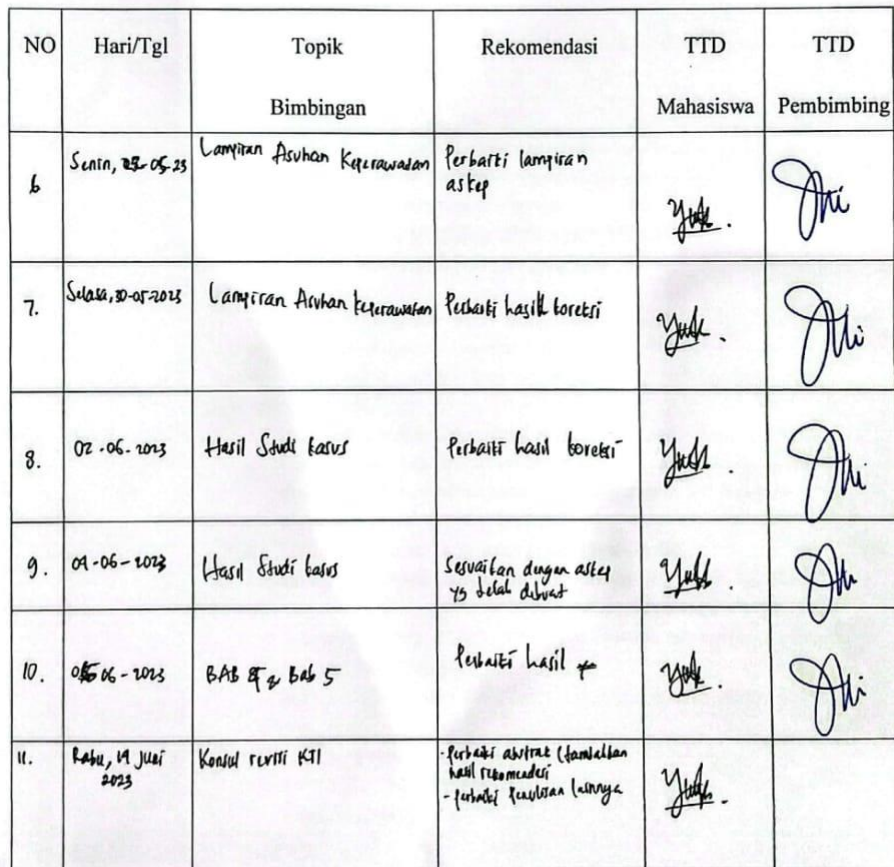 NO Hari/Tgl Topik Rekomendasi TTD TTD
Bimbingan Mahasiswa Pembimbing
6 Senin, 05-23 Lampiran Asuhan Keperawatan Perbaiki lampiran
askep
7. Selasa, 30-05-2023 Lampiran Asuhan Keperawatan Perbaiki hasil koreksi
8. 02-06-2023 Hasil Studi kasus Perbaiki hasil koreksi
9. 04-06-2023 Hasil Studi kasus Sesuaikan dengan askep
yg telah dibuat
10. 06-2023 BAB Bab 5 Perbaiki hasil
11. Rabu, 14 Juni Konsul revisi KTI - Perbaiki abstrak (tambahkan
2023 hasil rekomendasi
- Perbaiki Penulisan lainnya